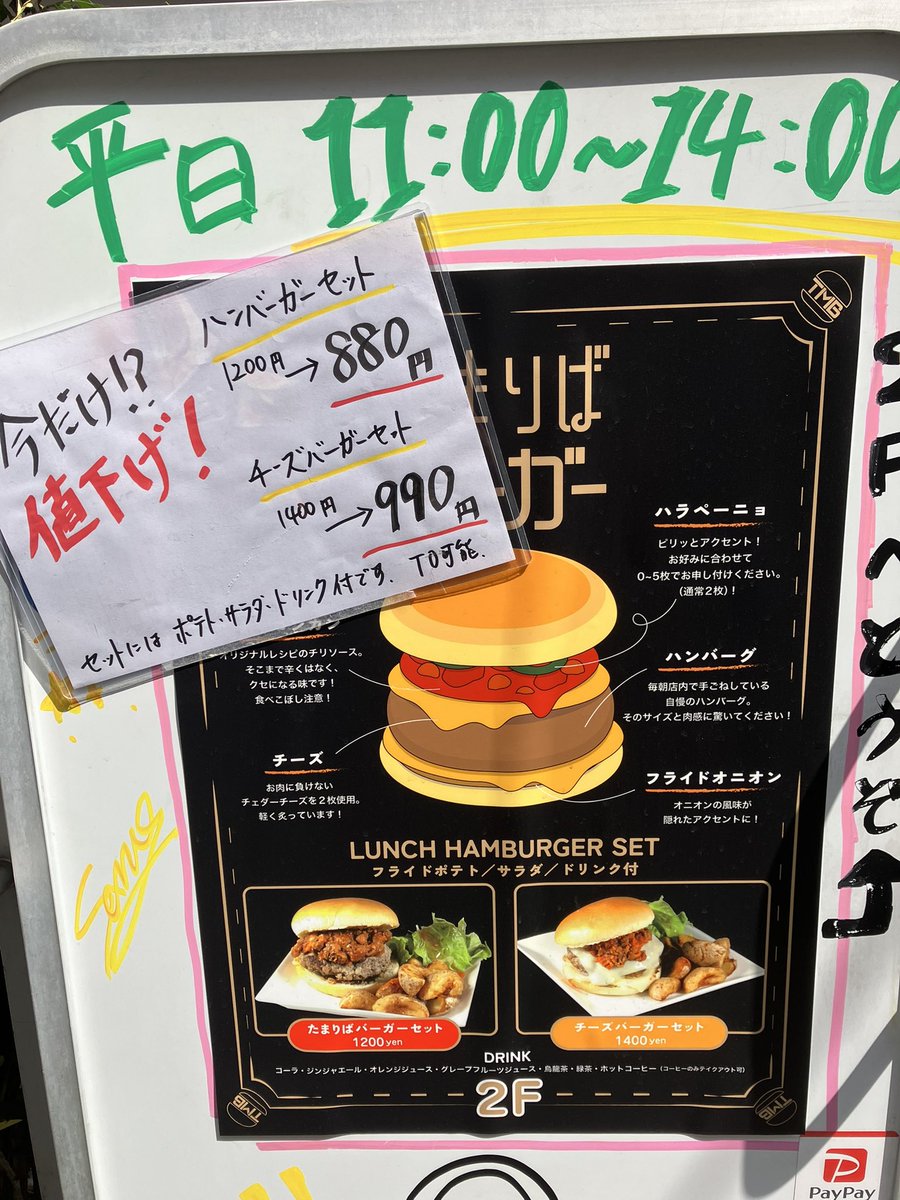 平日 11:00~14:00
ハンバーガーセット
1200円→880円
今だけ!?
値下げ!
チーズバーガーセット
1400円→990円
セットには ポテト・サラダ・ドリンク付です. TO可能.
TMB
まりば
ーガー
ハラペーニョ
ピリッとアクセント!
お好みに合わせて
0~5枚でお申し付けください。
(通常2枚)!
オリジナルレシピのチリソース。
そこまで辛くはなく、
クセになる味です!
食べこぼし注意!
ハンバーグ
毎朝店内で手ごねしている
自慢のハンバーグ。
そのサイズと肉感に驚いてください!
チーズ
お肉に負けない
チェダーチーズを2枚使用。
軽く炙っています!
フライドオニオン
オニオンの風味が
隠れたアクセントに!
LUNCH HAMBURGER SET
フライドポテト/サラダ/ドリンク付
たまりばバーガーセット
1200yen
チーズバーガーセット
1400yen
DRINK
コーラ・ジンジャエール・オレンジジュース・グレープフルーツジュース・烏龍茶・緑茶・ホットコーヒー (コーヒーのみテイクアウト可)
2F
TMB
TMB
2Fへどうぞ
PayPay